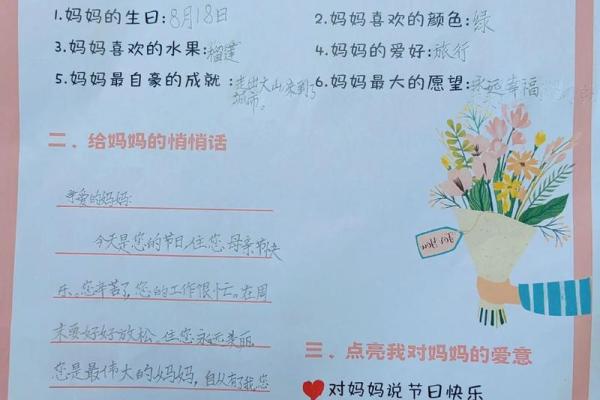 1.妈妈的生日:8月18日
2.妈妈喜欢的颜色:绿
3.妈妈喜欢的水果:榴莲
4.妈妈的爱好:旅行
5.妈妈最自豪的成就:走出大山来到了
城市。
6.妈妈最大的愿望:永远幸福
二、给妈妈的悄悄话
亲爱的妈妈:
今天是您的节日,住您母亲节快
乐。您辛苦了,您的工作很忙。在周
末要好好放松。住您永远美丽
您是最伟大的妈妈,自从有了我,您
for you
三、点亮我对妈妈的爱意
对妈妈说节日快乐